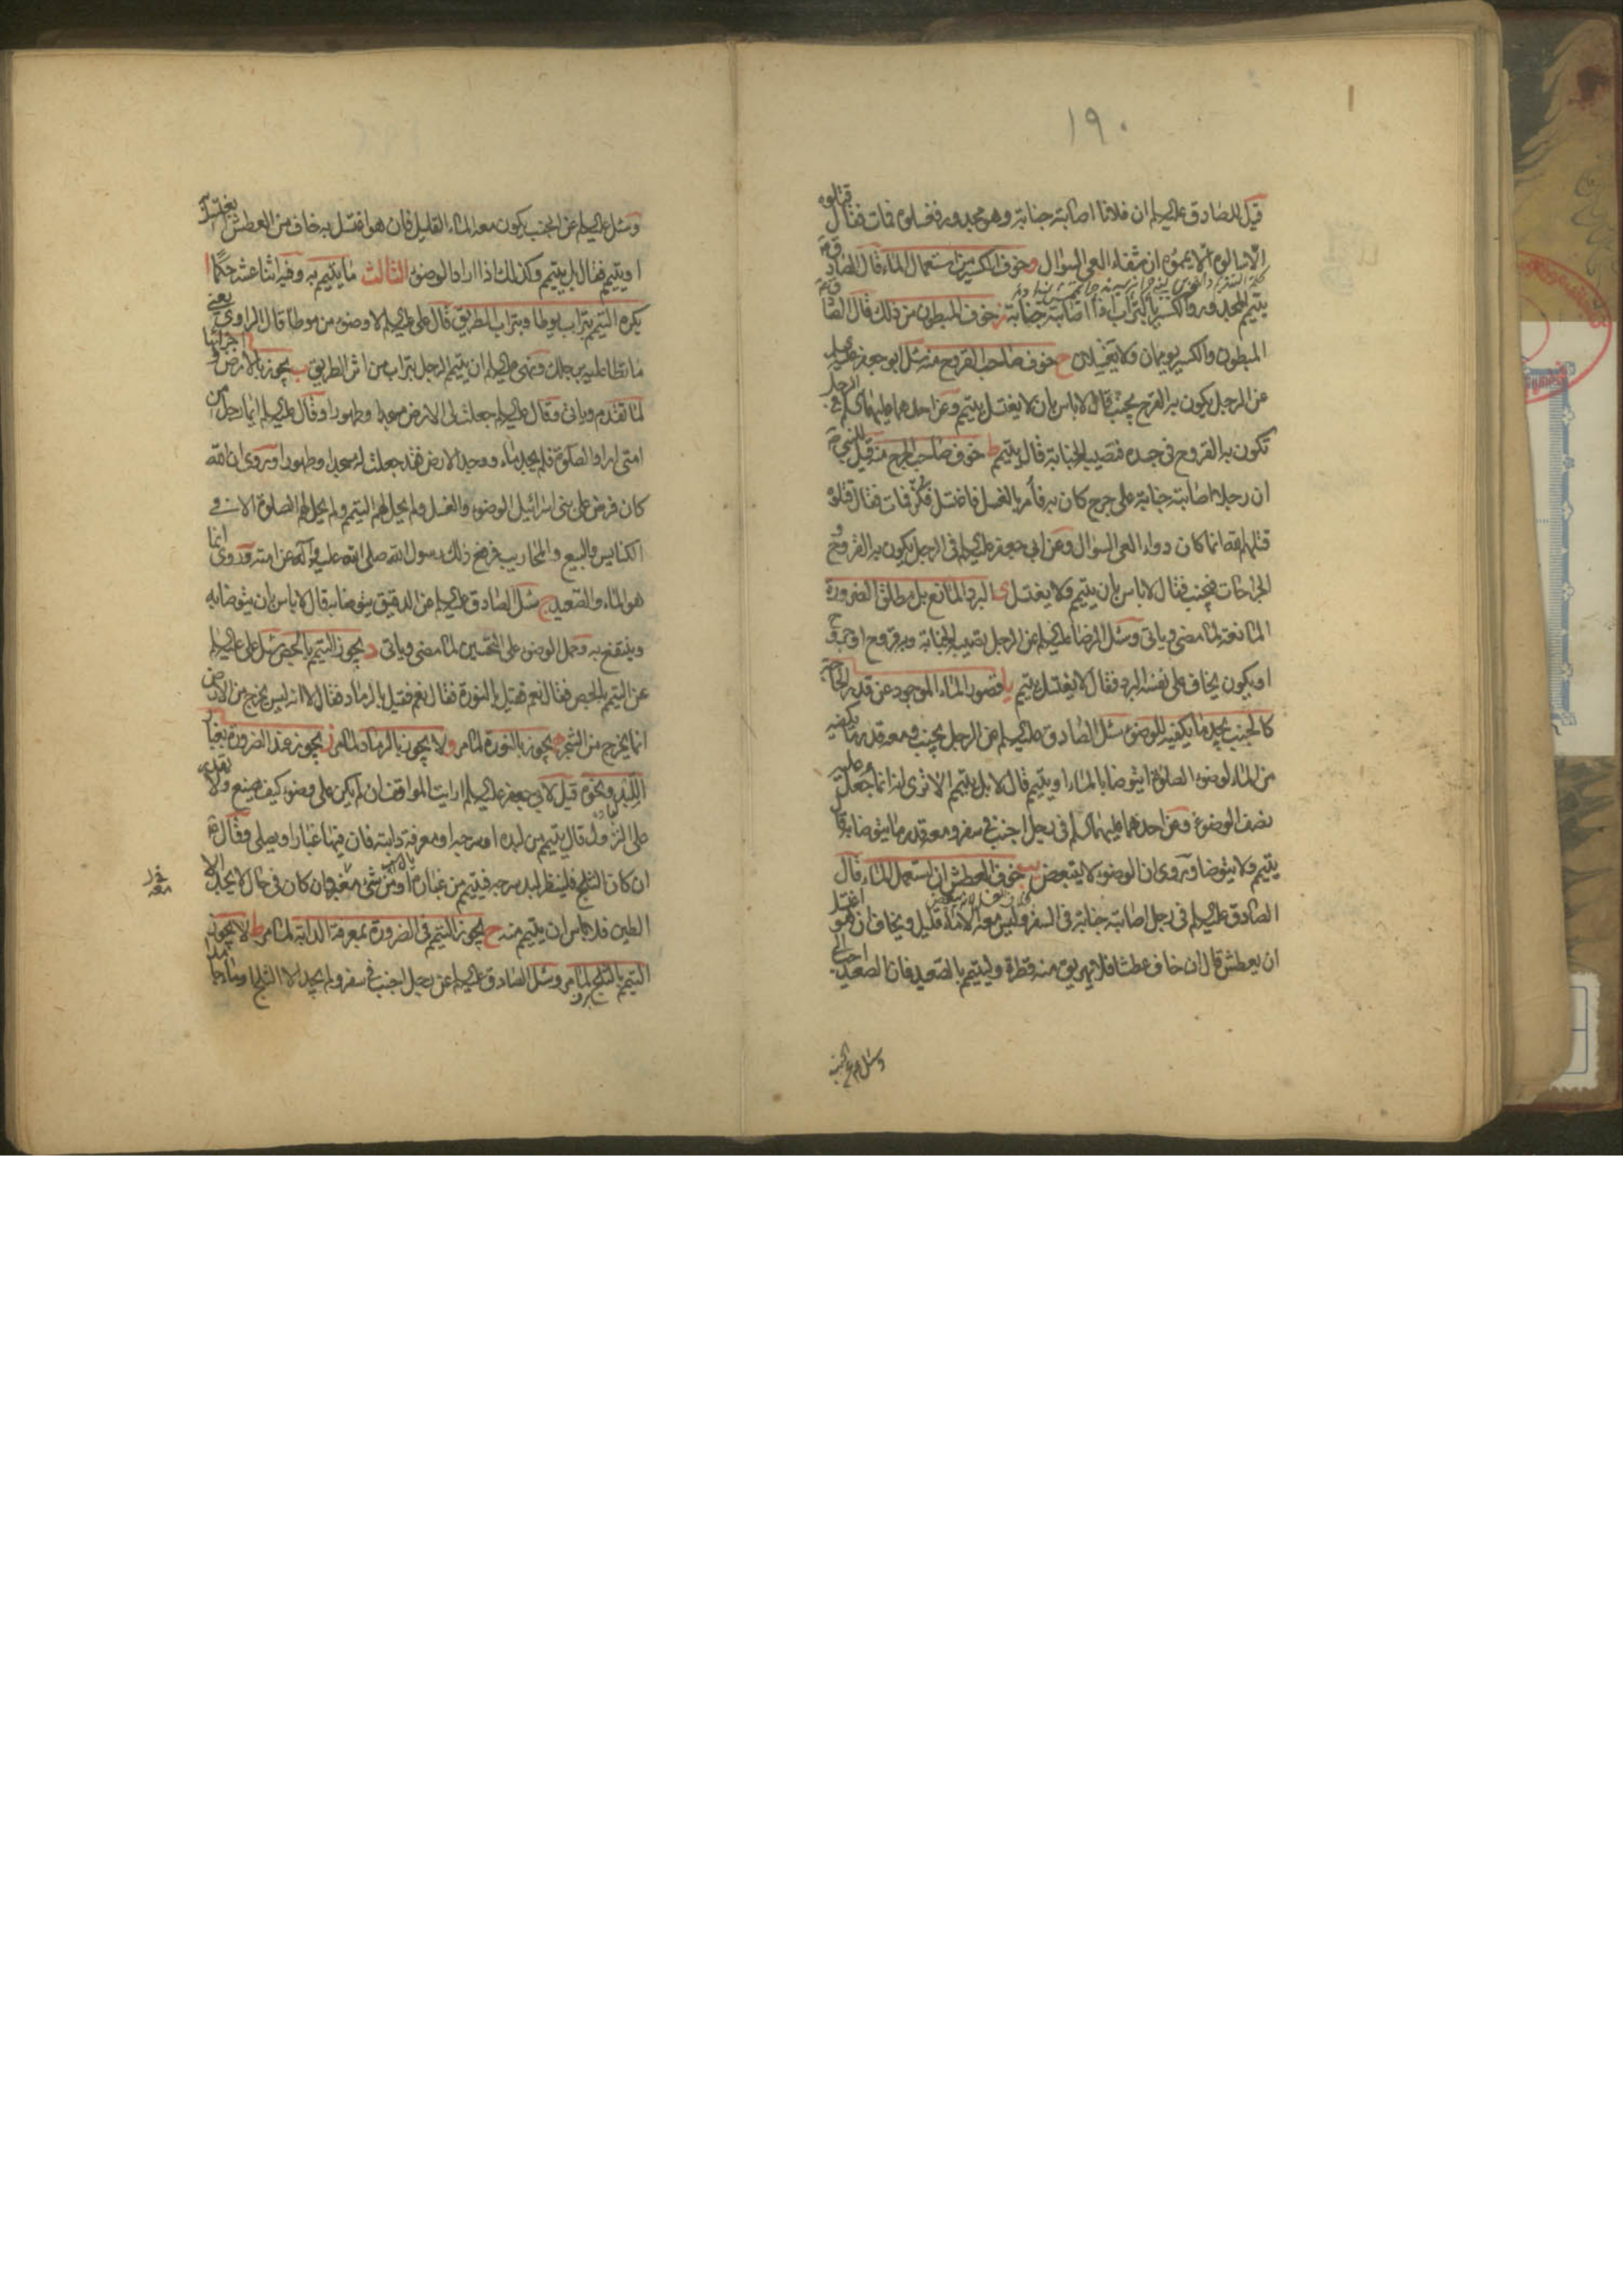 ١٩٠
قيل للصادق عليه السلام ان فلانا اصابته جنابة وهو مجدور فغسلوه فمات فقال قتلوه
الا سالوه الا يمموه ان شفاء العي السؤال و خوف الكسير من استعمال الماء قال الصادق
يتيمم المجدور والكسير بالتراب اذا اصابته جنابة ز خوف المبطون من ذلك قال الصا
المبطون والكسير يومان ولا يغسلان ح خوف صاحب القروح منه سئل ابو جعفر عليه السلام
عن الرجل يكون به القرح يجنب قال لا باس بان لا يغتسل يتيمم وعن احدهما عليهما السلام في الرجل
تكون به القروح في جسده فتصيبه الجنابة قال يتيمم ط خوف صاحب الجرح منه قيل للنبي
ان رجلا اصابته جنابة على جرح كان به فأمر بالغسل فاغتسل فكز فمات فقال قتلوه
قتلهم الله انما كان دواء العي السؤال وعن ابي جعفر عليه السلام في الرجل يكون به القروح
الجراحات فيجنب فقال لا باس بان يتيمم ولا يغتسل ى البرد المانع بل مطلق الضرورة
المانعة لما مضى وياتى وسئل الرضا عليه السلام عن الرجل تصيبه الجنابة وبه قروح او جروح
او يكون يخاف على نفسه البرد فقال لا يغتسل يتيمم يا قصور الماء الموجود عن قدر الحاجة
كالجنب يجد ما يكفيه للوضوء سئل الصادق عليه السلام عن الرجل يجنب ومعه قدر ما يكفيه
من الماء لوضوء الصلوة ايتوضا بالماء او يتيمم قال لا بل يتيمم الا ترى انه انما جعل عليه
نصف الوضوء وعن احدهما عليهما السلام في رجل اجنب في سفر ومعه قدر ما يتوضا به قال
يتيمم ولا يتوضا وروى ان الوضوء لا يتبعض يب خوف العطش ان استعمل الماء قال
الصادق عليه السلام في رجل اصابته جنابة في السفر وليس معه الا ماء قليل ويخاف ان هو اغتسل
ان يعطش قال ان خاف عطشا فلا يهريق منه قطرة وليتيمم بالصعيد فان الصعيد احب الي
وسئل ع عن الجنب
وسئل عليه السلام عن الجنب يكون معه الماء القليل فان هو اغتسل به خاف من العطش ايغتسل به
او يتيمم فقال بل يتيمم وكذلك اذا اراد الوضوء الثالث ما يتيمم به وفيه اثنا عشر حكما ا
يكره التيمم بتراب يوطا وبتراب الطريق قال على عليه السلام لا وضوء من موطا قال الراوى يعنى
ما تطا عليه برجلك ونهى عليه السلام ان يتيمم الرجل بتراب من اثر الطريق ب يجوز بالارض واجزائها
لما تقدم وياتى وقال عليه السلام جعلت لى الارض مسجدا وطهورا وقال عليه السلام ايما رجل من
امتى اراد الصلوة فلم يجد ماء ووجد الارض فقد جعلت له مسجدا وطهورا وروى ان الله
كان فرض على بنى اسرائيل الوضوء والغسل ولم يحل لهم التيمم ولم يحل لهم الصلوة الا في
الكنايس والبيع والمحاريب فرفع ذلك رسول الله صلى الله عليه وآله عن امته وروى انما
هو الماء والصعيد ج سئل الصادق عليه السلام عن الدقيق يتوضا به قال لا باس بان يتوضا به
وينتفع به وحمل الوضوء على التحسين لما مضى وياتى د يجوز التيمم بالجص سئل على عليه السلام
عن التيمم بالجص فقال نعم فقيل بالنورة فقال نعم فقيل بالرماد فقال لا انه ليس يخرج من الارض
انما يخرج من الشجر ه يجوز بالنورة لما مر و لا يجوز بالرماد لما مر ز يجوز عند الضرورة بغبار
اللبد ونحوه قيل لابي جعفر عليه السلام ارايت المواقف ان لم يكن على وضوء كيف يصنع ولا يقدر
على النزول قال يتيمم من لبده او سرجه او معرفة دابته فان فيها غبارا ويصلى وقال
ان كان الثلج فلينظر لبد سرجه فيتيمم من غباره او من شئ مغبر وان كان في حال لا يجد الا
الطين فلا باس ان يتيمم منه ح يجوز التيمم في الضرورة بمعرفة الدابة لما مر ط لا يجوز
التيمم بالثلج لما مر وسئل الصادق عليه السلام عن رجل اجنب في سفر ولم يجد الا الثلج او ماء جامدا